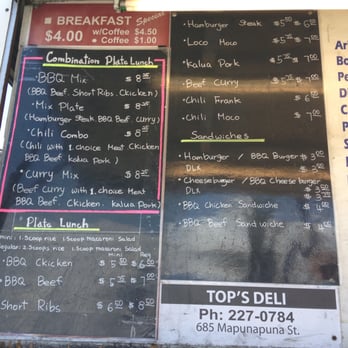 BREAKFAST Special
$4.00 w/Coffee $4.50
• Coffee $1.00
Combination Plate Lunch
• BBQ Mix $ 8
(BBQ Beef. Short Ribs. Chicken)
• Mix Plate $ 8
(Hamburger Steak BBQ Beef. Curry)
• Chili Combo $ 8
(Chili with 1 choice Meat Chicken
BBQ Beef Kalua Pork)
• Curry Mix $ 8
(Beef Curry with 1. choice Meat
BBQ Beef. Chicken. Kalua Pork)
Plate Lunch
Mini: 1. Scoop rice 1. Scoop macaroni Salad
Regular: 2. Scoop rice 1. Scoop macaroni Salad
Mini Reg
• BBQ Chicken $ 5 $ 6
• BBQ Beef $ 5 $ 7
Short Ribs $ 6 $ 8
• Hamburger Steak $ 5 $ 6
• Loco Moco $ 5 $ 7
• Kalua Pork $ 5 $ 7
• Beef Curry $ 5 $ 7
• Chili Frank $ 6
• Chili Moco $ 7
Sandwiches
• Hamburger / BBQ Burger $ 3
DLX
• Cheeseburger / BBQ Cheese burger
DLX
• BBQ Chicken Sandwiche
• BBQ Beef Sandwiche
TOP'S DELI
Ph: 227-0784
685 Mapunapuna St.